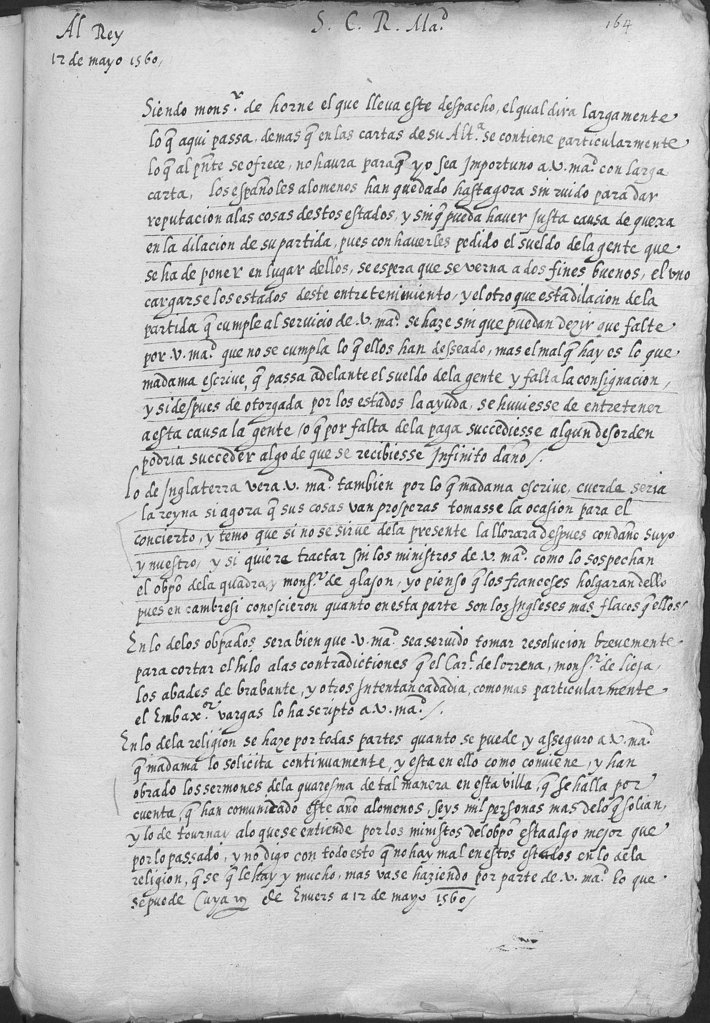 Al Rey
S. C. R. Mad.
164
12 de mayo 1560,
Siendo mons.r de horne el que lleva este despacho, el qual dira largamente
lo q̃ aqui passa, demas q̃ en las cartas de su Alt.a se contiene particularmente
lo q̃ al pñte se ofrece, no haura paraq̃ yo sea Importuno a v. ma.d con larga
carta, los españoles alomenos han quedado hastagora sin ruido para dar
reputacion alas cosas destos estados, y sin q̃ pueda haver Justa causa de quexa
en la dilacion de su partida, pues con haverles pedido el sueldo dela gente que
se ha de poner en lugar dellos, se espera que se verna a dos fines buenos, el uno
cargarse los estados deste entretenimiento, y el otro que esta dilacion de la
partida q̃ cumple al servicio de v. ma.d se haze sin que puedan dezir que falte
por v. ma.d que no se cumpla lo q̃ ellos han desseado, mas el mal q̃ hay es lo que
madama escrive, q̃ passa adelante el sueldo dela gente y falta la consignacion,
y si despues de otorgada por los estados la ayuda, se huviesse de entretener
a esta causa la gente, o q̃ por falta dela paga succediesse algun desorden
podria succeder algo de que se recibiesse Infinito daño/.
Lo de Inglaterra vera v. ma.d tambien por lo q̃ madama escrive, cuerda seria
la reyna si agora q̃ sus cosas van prosperas tomasse la ocasion para el
concierto, y temo que si no se sirve dela presente la llorara despues con daño suyo
y nuestro, y si quiere tractar sin los ministros de v. ma.d como lo sospechan
el obpo dela quadra, y mons.r de glason, yo pienso q̃ los franceses holgaran dello
pues en cambresi conoscieron quanto en esta parte son los Ingleses mas flacos q̃ ellos/
En lo delos obpados sera bien que v. ma.d sea servido tomar resolucion brevemente
para cortar el hilo a las contradictiones q̃ el Car.l de lorrena, mons.r de lieja,
los abades de brabante, y otros Intentan cadadia, como mas particularmente
el Embax.or vargas lo ha scripto a v. ma.d/.
En lo dela religion se haze por todas partes quanto se puede, y asseguro a v. ma.d
q̃ madama lo solicita continuamente, y esta en ello como conviene, y han
obrado los sermones dela quaresma de tal manera en esta villa, q̃ se halla por
cuenta, q̃ han comunicado este año alomenos, seys mil personas mas delo q̃ solian,
y lo de tournay alo que se entiende por los ministos del obpo esta algo mejor que
por lo passado, y no digo con todo esto q̃ no hay mal en estos estados en lo dela
religion, q̃ se q̃ le hay y mucho, mas vase haziendo por parte de v. ma.d lo que
se puede de Envers a 12 de mayo 1560/